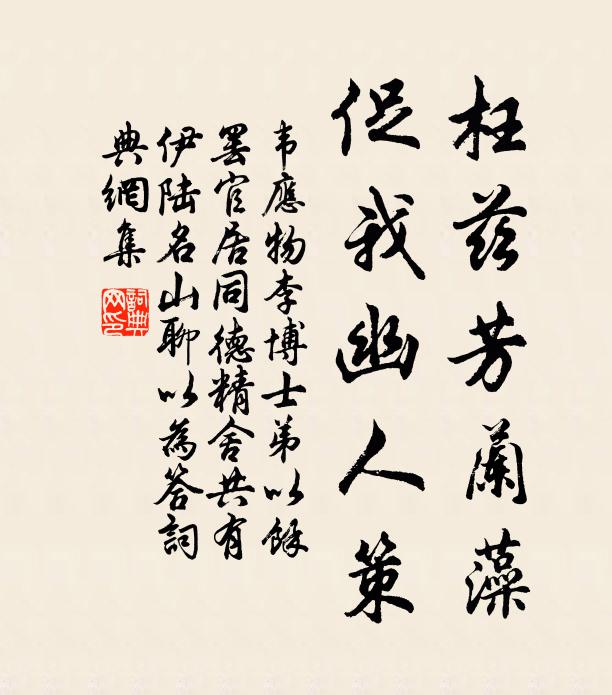 枉茲芳蘭藻
促我幽人策
韦應物李博士弟以餘
罢官居同德精舍共有
伊陆名山聊以為答詞
典網集
詞典
网印